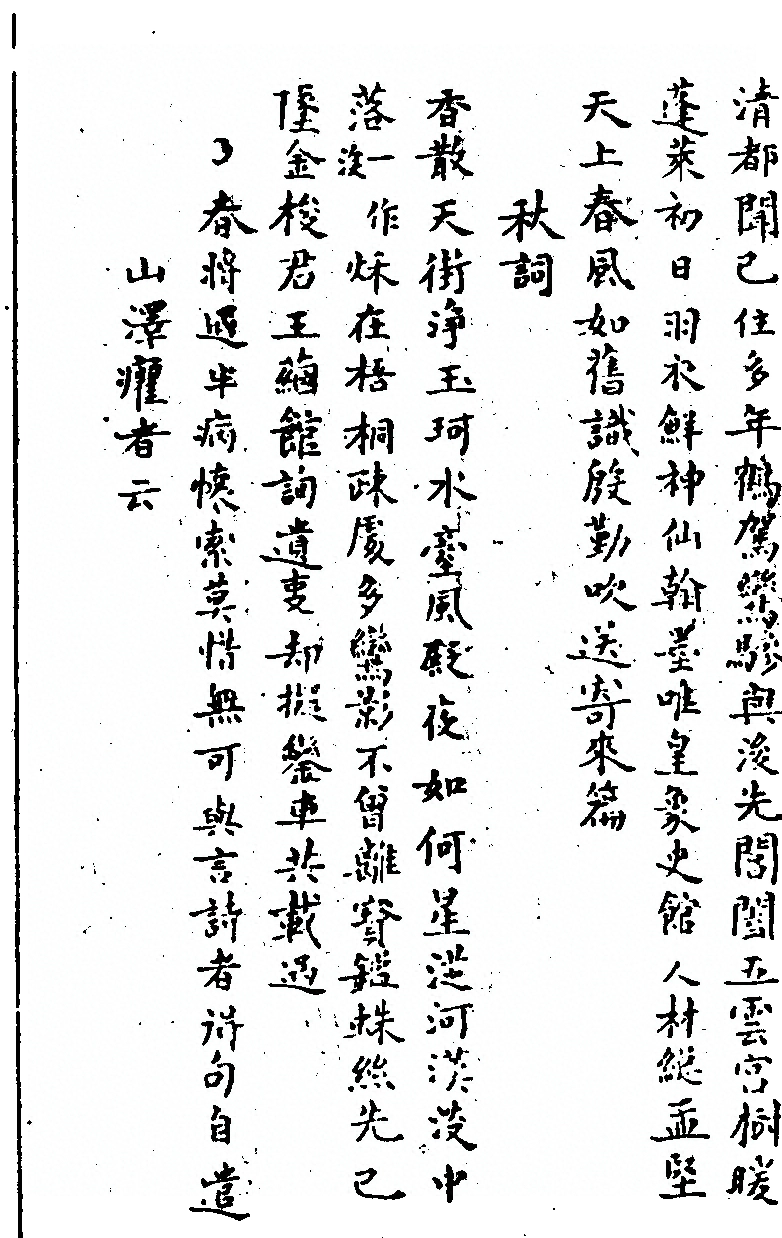 清都聞已住多年鶴駕鸞驂與浚先閶闔五雲宮樹暖
蓬萊初日羽衣鮮神仙翰墨唯皇象史館人材縱孟堅
天上春風如舊識殷勤吹送寄來篇
秋詞
香散天街淨玉珂水臺風殿夜如何星從河漢浚中
落一作浚秌在梧桐踈處多鸞影不曾離寶鏡蛛絲先已
墮金梭君王
館詢遺
却擬
車共載過
春將過半病懷索莫惜無可與言詩者
句自遣
山澤癯者云